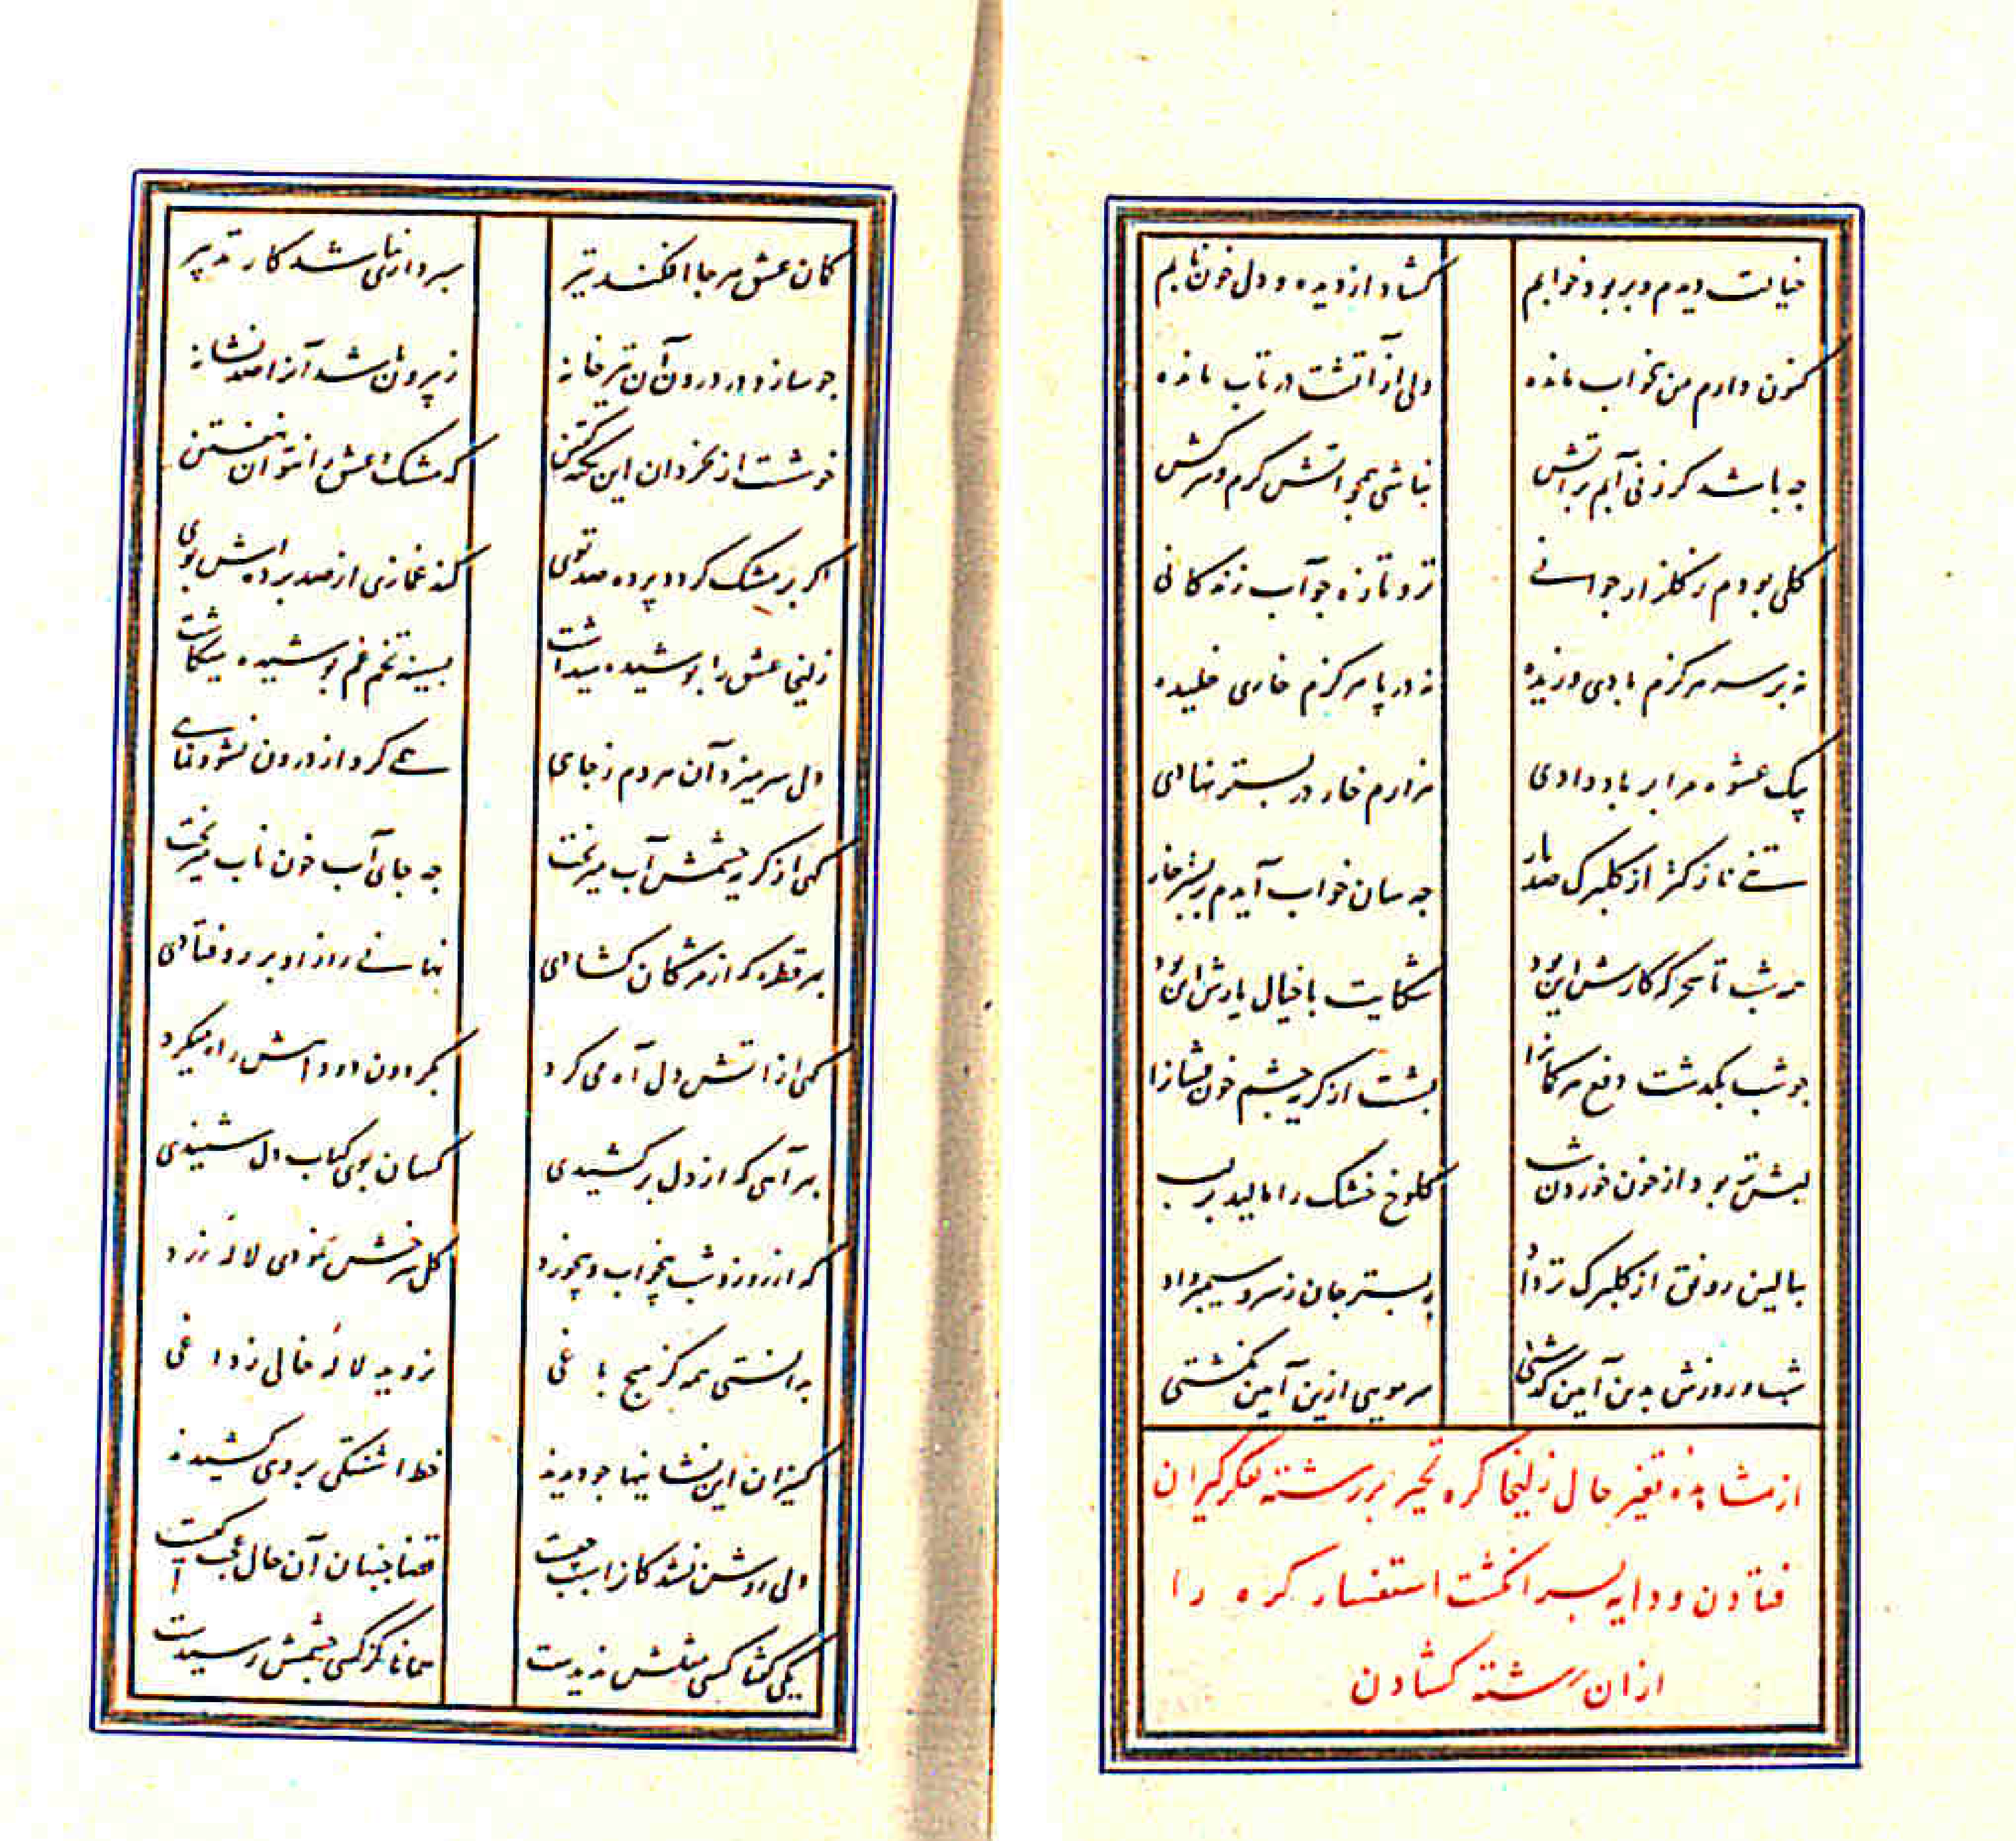 خیالت دیدم و بربود خوابم
کشاد از دیده و دل خون نابم
کنون دارم من بخواب مانده
دلی از آتشت در تاب مانده
چه باشد کر زنی آبم بر آتش
نباشی همچو آتش کرم و سرکش
کلی بودم ز کلزار جوانی
تر و تازه چو آب زندکانی
نه بر سر هرکزم بادی وزیده
نه در پا هرکزم خاری خلیده
بیک عشوه مرا بر باد دادی
هزارم خار در بستر نهادی
تنی نازکتر از کلبرک صد بار
چه سان خواب آیدم بر بستر خار
همه شب تا سحرکه کارش این بود
شکایت با خیال یارش این بود
چو شب بکذشت دفع هر کمانرا
بشست از کریه چشم خون فشانرا
لبش تر بود از خون خوردن شب
کلوخ خشک را مالید بر لب
ببالین رونق از کلبرک تر داد
به بستر جان ز سرو سیمبر داد
شب و روزش بدین آیین کذشتی
سر مویی ازین آیین نکشتی
از مشاهده تغیر حال زلیخا کره تحیر بر رشته تفکر کنیزان
فتادن و دایه بسر انکشت استفسار کره را
از ان رشته کشادن
کمان عشق هر جا افکند تیر
سپرداری نباشد کار تدبیر
چو سازد در درون آن تیر خانه
ز بیرون باشد آنرا صد نشانه
خوشست از بخردان این نکته کفتن
که مشک و عشق را نتوان نهفتن
اکر بر مشک کردد پرده صد توی
کند غمازی از صد پرده اش بوی
زلیخا عشق را پوشیده میداشت
بسینه تخم غم پوشیده میکاشت
ولی سر میزد آن هر دم ز جای
همی کرد از درون نشو و نمای
کهی از کریه چشمش آب میریخت
چه جای آب خون ناب میریخت
بهر قطره که از مژکان کشادی
نهانی راز او بر رو فتادی
کهی از آتش دل آه می کرد
بکردون دود آهش راه میکرد
بهر آهی که از دل بر کشیدی
کسان بوی کباب دل شنیدی
که از روز و شب بیخواب و بیخورد
کل سرخش نمودی لاله زرد
بدانستی همه کز هیچ باغی
نروید لاله خالی ز داغی
کنیزان این نشانیها چو دیدند
خط آشفتکی بر وی کشیدند
ولی روشن نشد کانرا سبب چیست
قضا جنبان آن حال عجب کیست
یکی کفتا کسی مثلش ندیدست
همانا کز کسی چشمش رسیدست